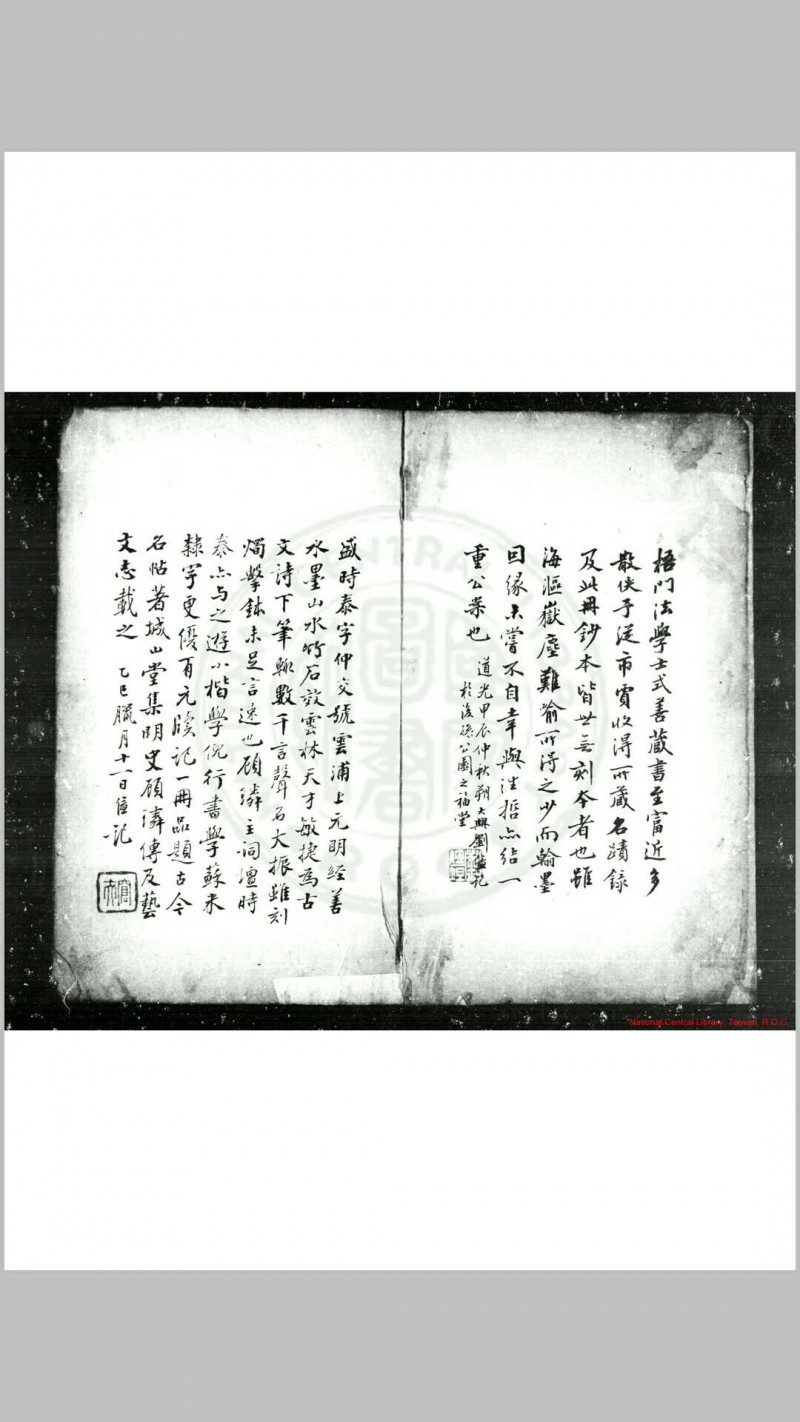 梧門法學士式善藏書至富近多
散佚予從市賈收得所藏名蹟錄
及此冊鈔本皆世無刻本者也雖
海漚嶽塵難喻所得之少而翰墨
因緣未嘗不自幸與法梧亦結一
重公案也
道光甲辰仲秋朔大興劉
記
於後孫公園之福堂
盛時泰字仲交號雲浦上元明經善
水墨山水竹石效雲林天才敏捷為古
文詩下筆輒數千言聲名大振雖刻
燭擊鉢未足言速也顧璘主詞壇時
泰亦与之遊小楷學倪行書學蘇米
隸字更優有元牘記一冊品題古今
名帖著城山堂集明史顧璘傳及藝
文志載之
乙巳臘月十一日位記
National Central Library, Taiwan, R.O.C.